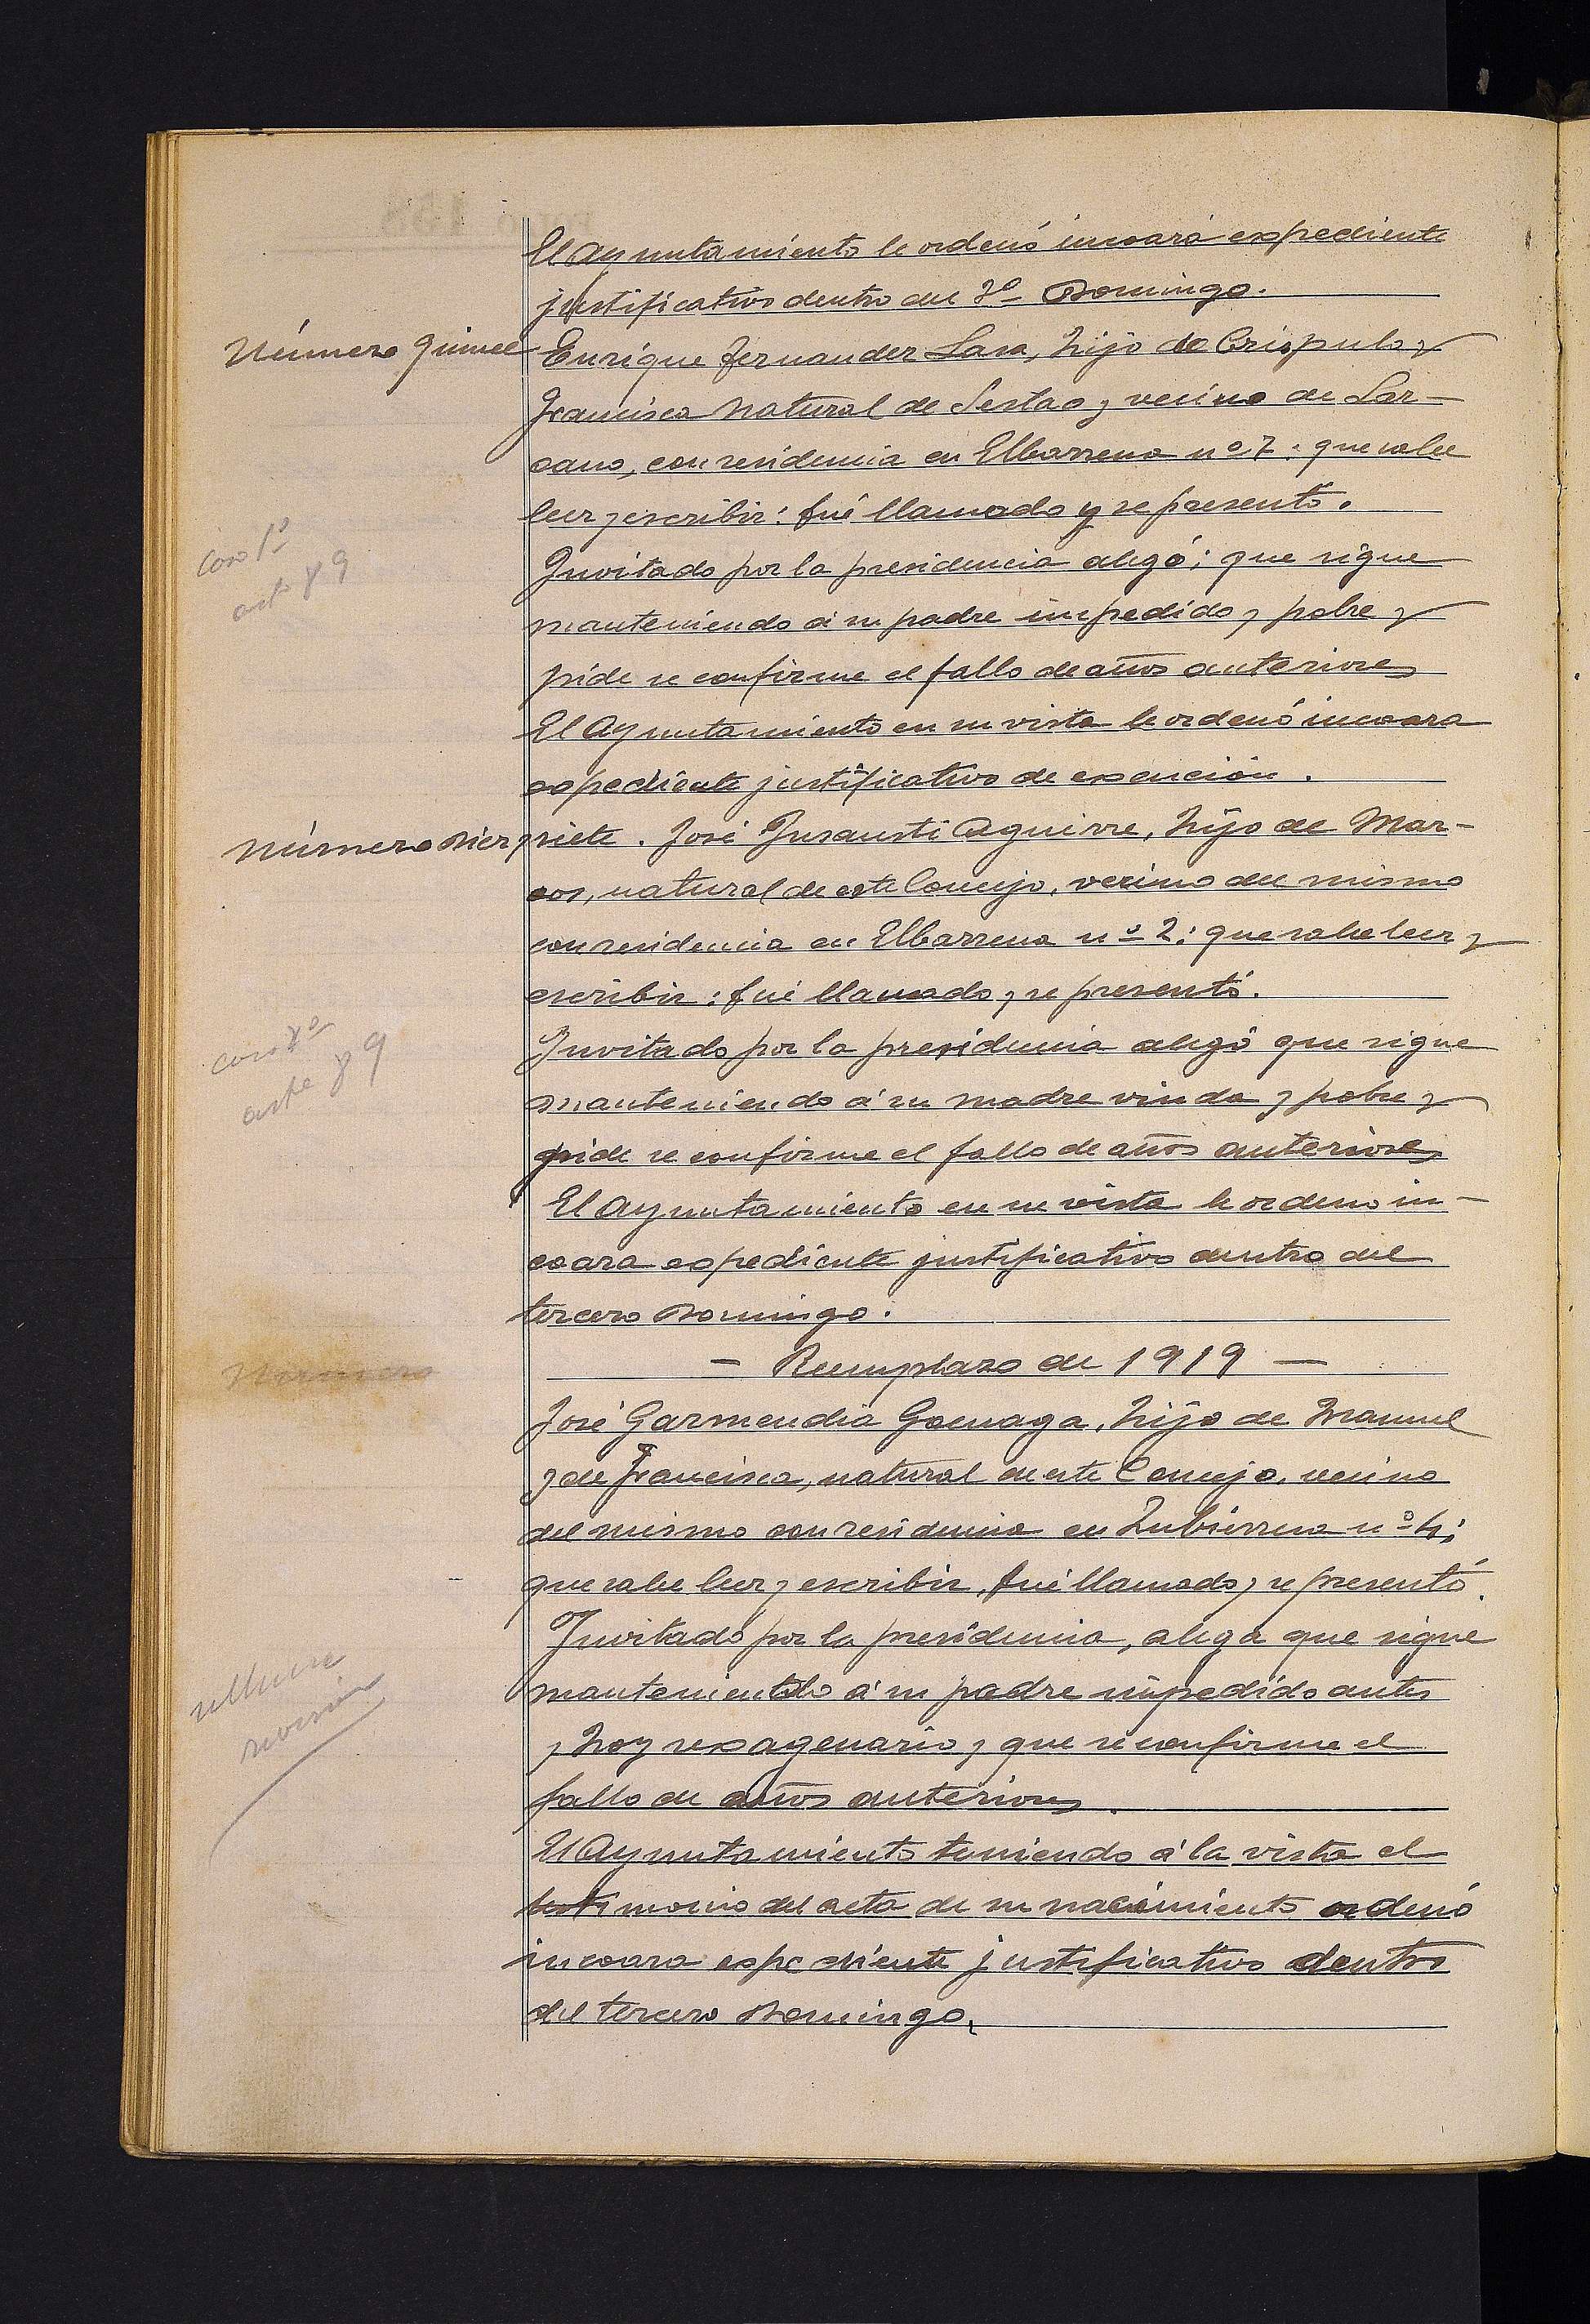 El Ayuntamiento le ordenó incoará expediente
justificativo dentro del 3º Domingo.
Número quince Enrique Fernandez Lasa, hijo de Crispulo y
Francisca natural de Sestao y vecino de Laz-
cano, con residencia en Elbarrena nº 7: que sabe
leer y escribir: fué llamado y se presentó.
caso 1º
art 89
Invitado por la presidencia alegó; que sigue
manteniendo á su padre impedido y pobre y
pide se confirme el fallo de años anteriores
El Ayuntamiento en su vista le ordenó incoara
expediente justificativo de exención.
Número diez y siete. José Insausti Aguirre, hijo de Mar-
cos, natural de este Concejo, vecino del mismo
con residencia en Elbarrena nº 2: que sabe leer y
escribir: fué llamado y se presentó.
caso
arte 89
Invitado por la presidencia alegó que sigue
manteniendo á su madre viuda y pobre y
pide se confirme el fallo de años anteriores
El Ayuntamiento en su vista le ordeno in-
coara expediente justificativo dentro del
tercero Domingo.
- Reemplazo de 1919 -
José Garmendia Goenaga, hijo de Manuel
y de Francisca, natural de este Concejo, vecino
del mismo con residencia en Zubierrena nº 4;
que sabe leer y escribir, fué llamado y se presentó.
Invitado por la presidencia, alega que sigue
manteniendo á su padre impedido antes
y hoy sexagenario y que se confirme el
revisión
fallo de años anteriores.
El Ayuntamiento teniendo á la vista el
testimonio del acta de su nacimiento ordenó
incoara expediente justificativo dentro
del tercero Domingo.